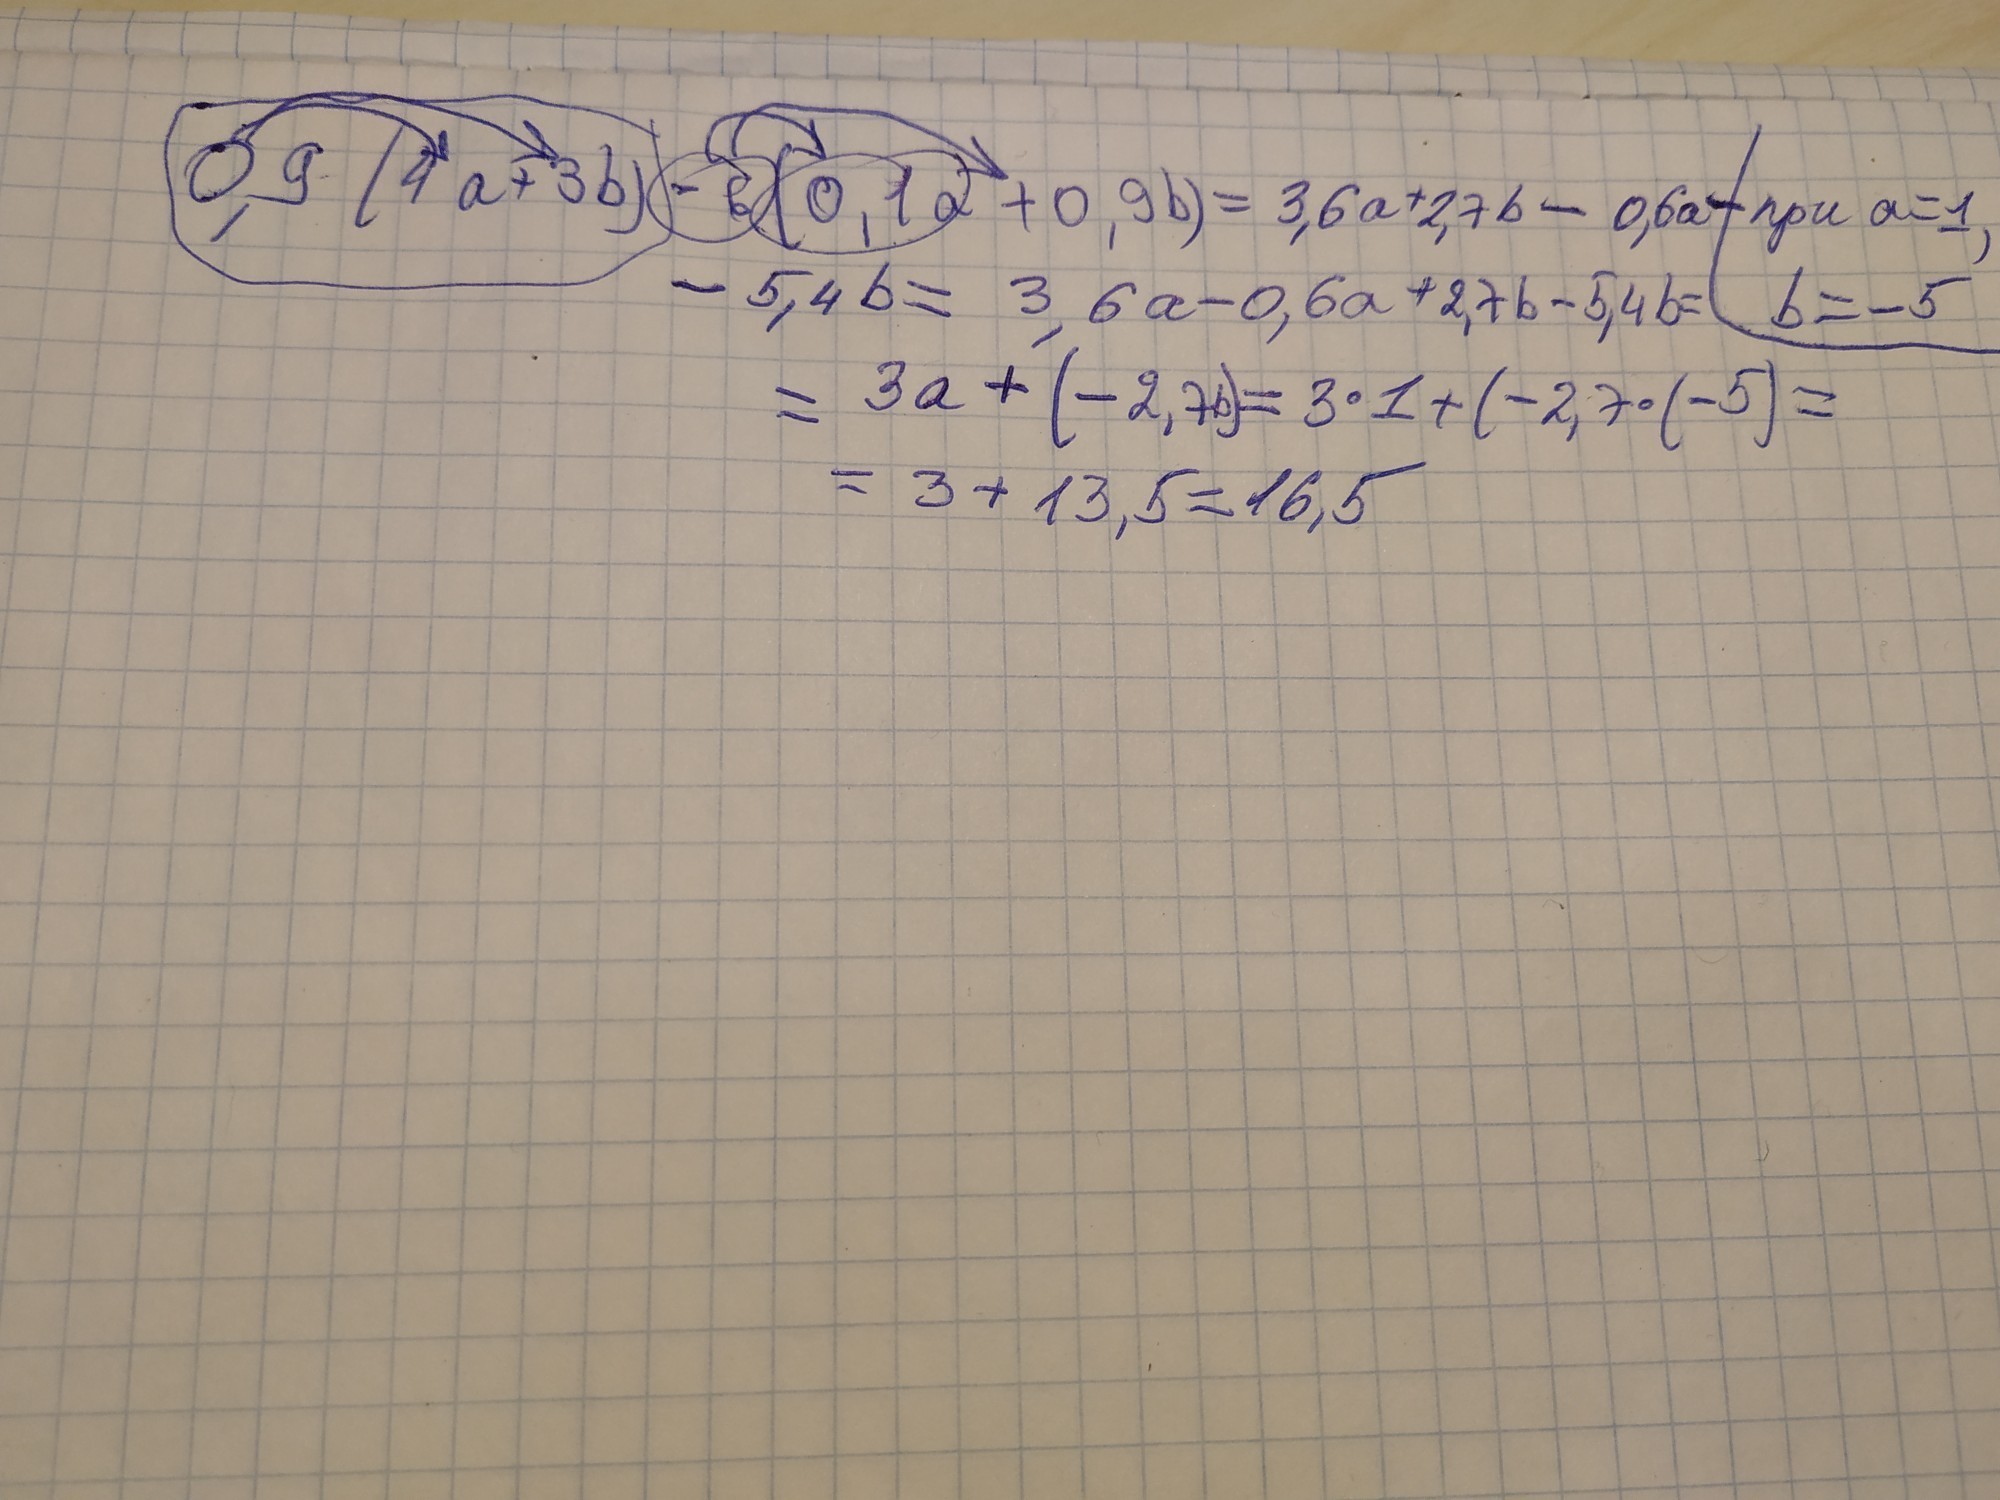 0,9 (4a+3b) - 6 (0,1a + 0,9b) = 3,6a+2,7b - 0,6a - при a=1,
- 5,4b = 3,6a - 0,6a + 2,7b - 5,4b = b = -5
= 3a + (-2,7b) = 3·1 + (-2,7·(-5) =
= 3 + 13,5 = 16,5